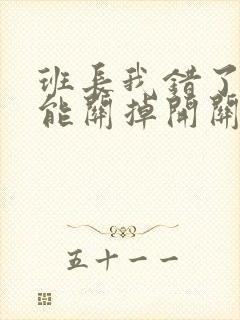 班长我错了
能關掉開關
五十一一